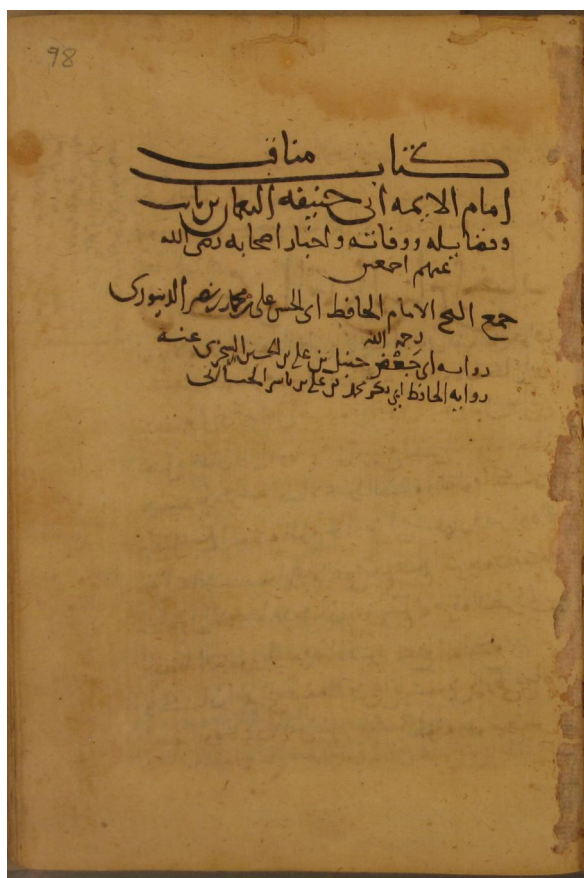 98
كتاب مناقب
امام الايمه ابى حنيفه النعمان بن ثابت
وفضايله ووفاته واخبار اصحابه رضى الله
عنهم اجمعين
جمع الشيخ الامام الحافظ ابى الحسن على بن محمد بن نصر الدينورى
رحمه الله
روايه ابى جعفر حنبل بن على بن الحسين السجزى عنه
روايه الحافظ ابى بكر محمد بن على بن ياسر الجيانى